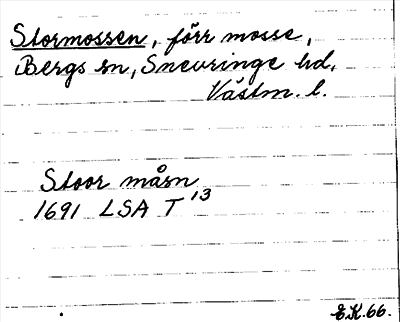 Stormossen, förr mosse,
Bergs sn, Snevringe hd,
Västm. l.
Stoor måsn
1691 LSA T 13
E.K.66.